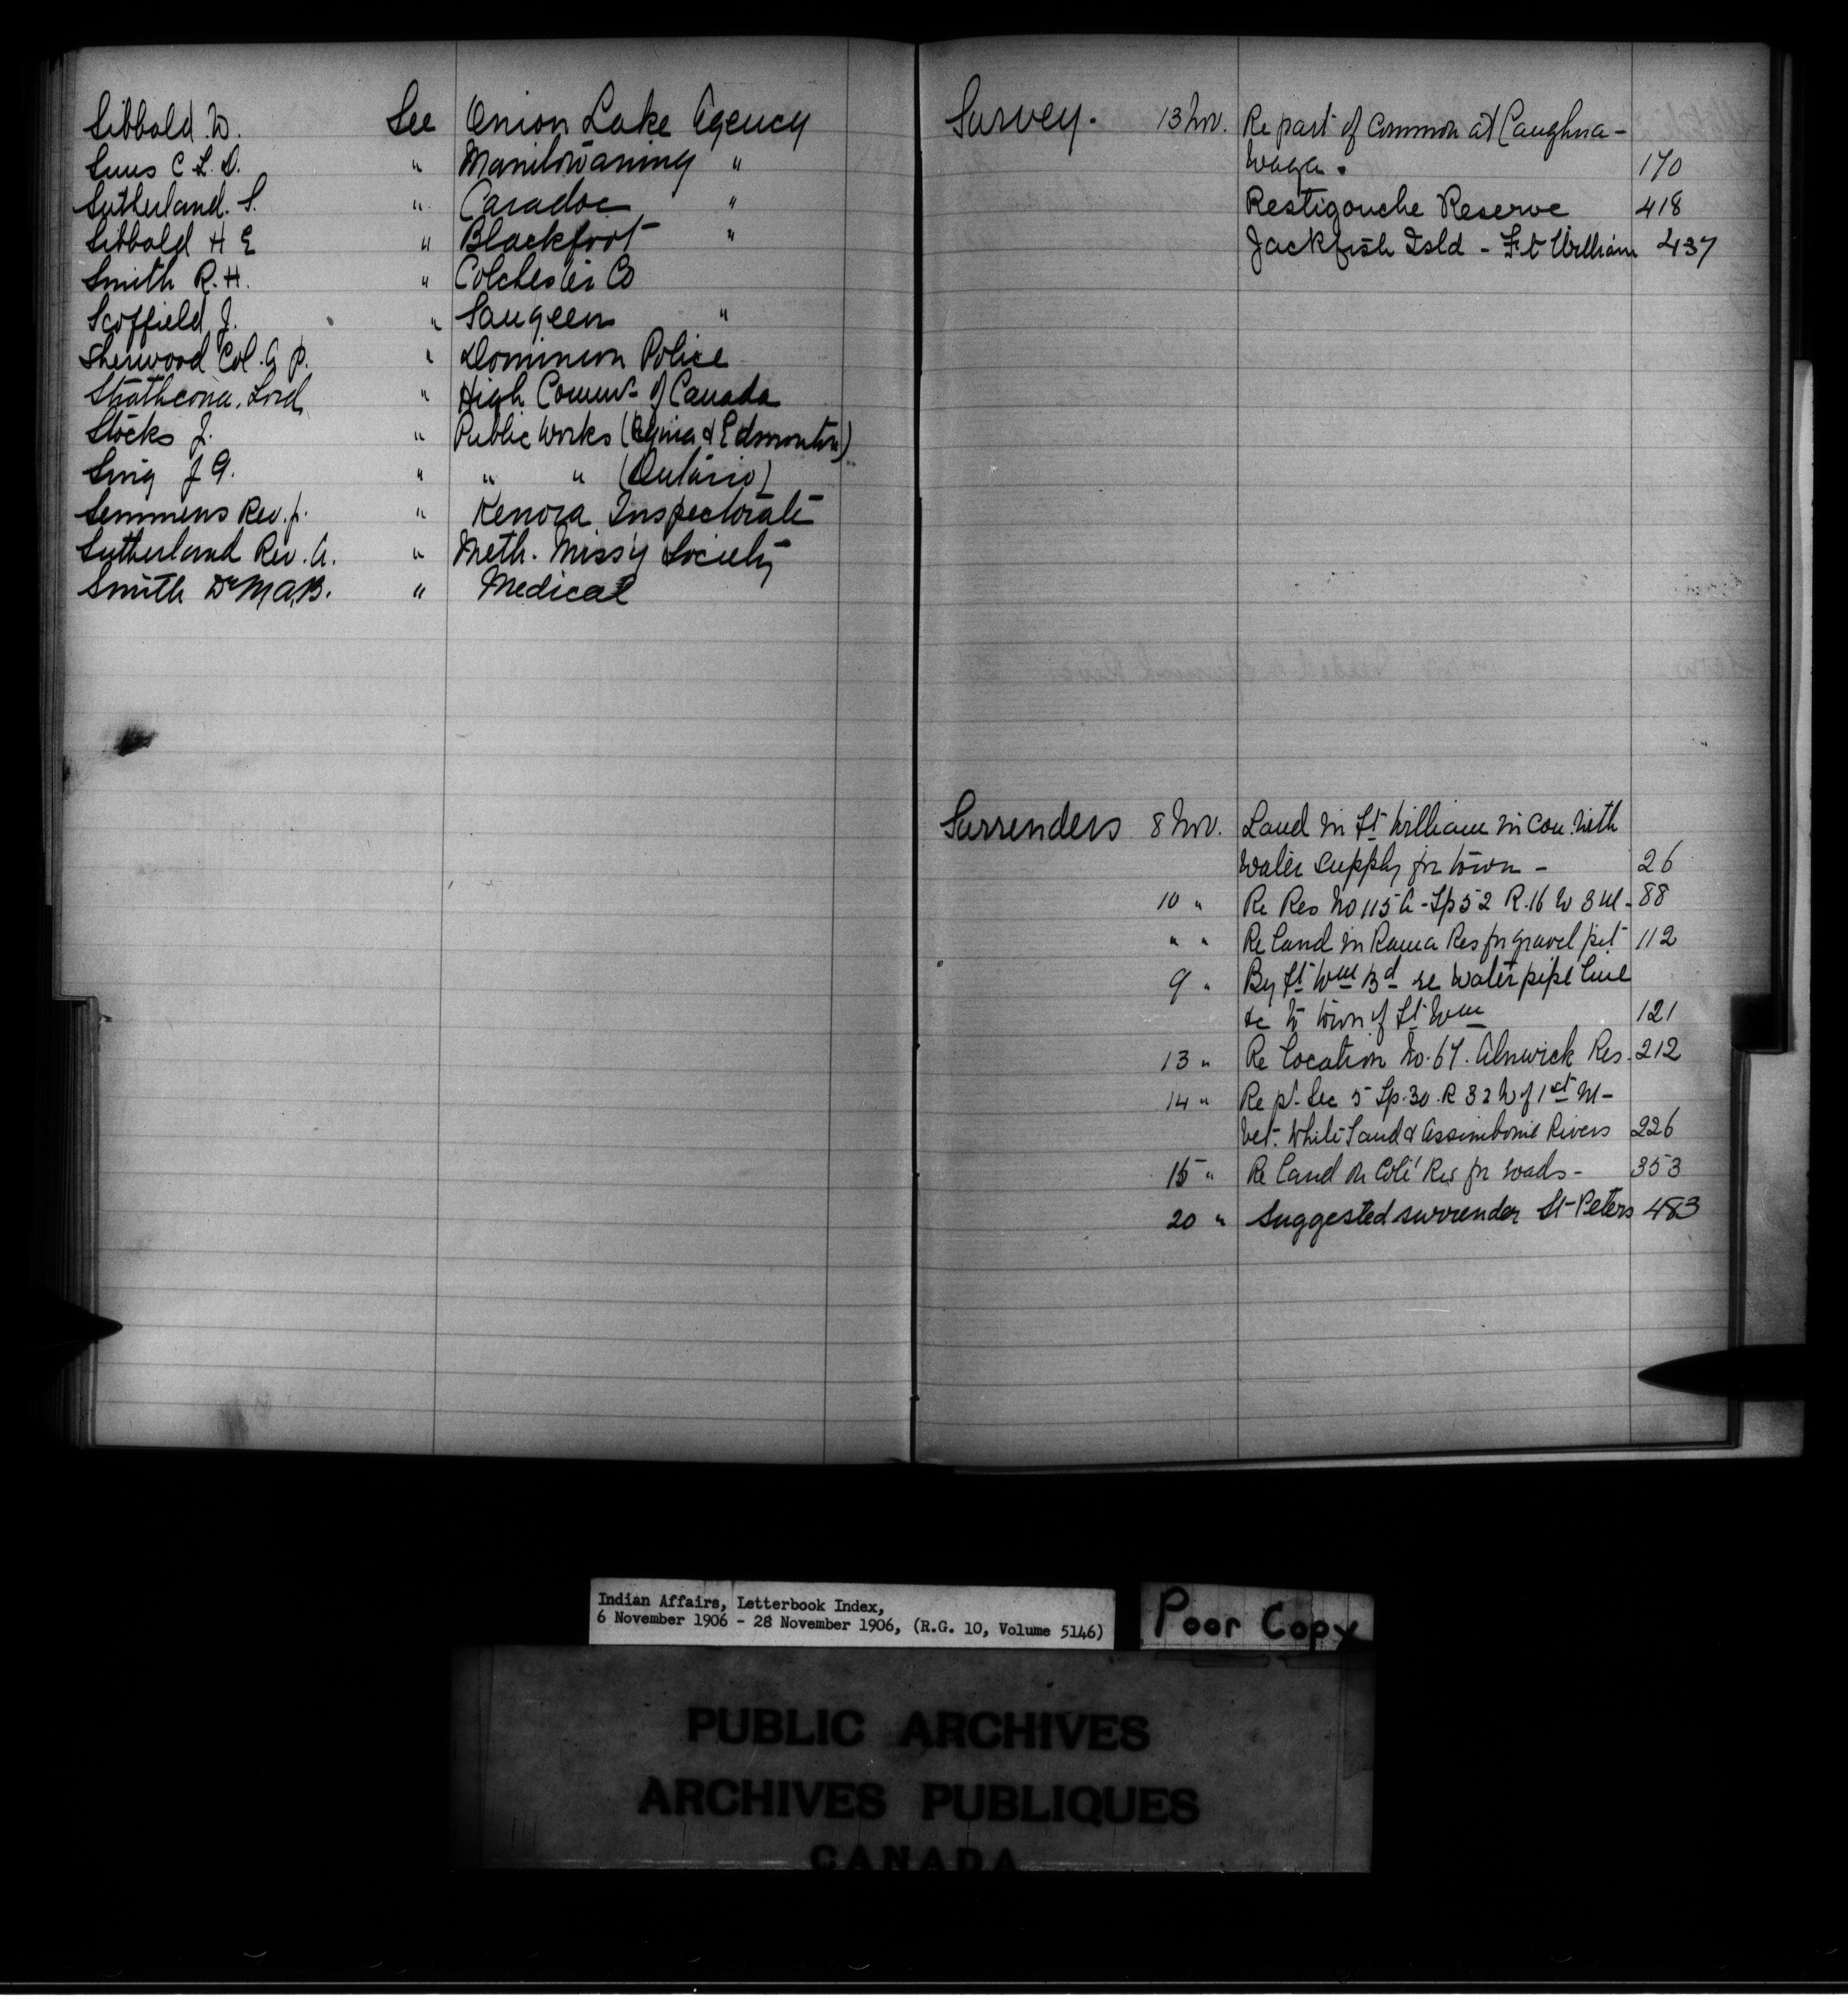 Sibbald W. See Onion Lake Agency
Sims C. L. D. " Manitowaning "
Sutherland. S. " Caradoc "
Sibbald H E " Blackfoot "
Smith R. H. " Colchester Co
Scoffield J. " Saugeen "
Sherwood Col. A P. " Dominion Police
Strathcona, Lord " High Commr of Canada
Stocks J. " Public Works (Regina & Edmonton)
Sing J G. " " " (Ontario)
Semmens Rev. J. " Kenora Inspectorate
Sutherland Rev. A. " Meth. Missy Society
Smith Dr M A. B. " Medical
Survey. 13 Nov. Re part of Common at Caughna-
waga. 170
Restigouche Reserve 418
Jackfish Isld - Ft William 437
Surrenders 8 Nov. Land in Ft William in con. with
water supply for town - 26
10 " Re Res No 115 A - Tp 52 R. 16 W 3 M - 88
" " Re land in Rama Res for gravel pit 112
9 " By Ft Wm Bd re water pipe line
&c to town of Ft Wm 121
13 " Re Location No. 67. Alnwick Res. 212
14 " Re pt. Sec 5 Tp. 30. R 32 W of 1st M -
bet. White Sand & Assiniboine Rivers 226
15 " Re land on Coté Res for roads - 353
20 " Suggested surrender St Peters 483
Indian Affairs, Letterbook Index,
6 November 1906 - 28 November 1906, (R.G. 10, Volume 5146)
Poor Copy
PUBLIC ARCHIVES
ARCHIVES PUBLIQUES
CANADA